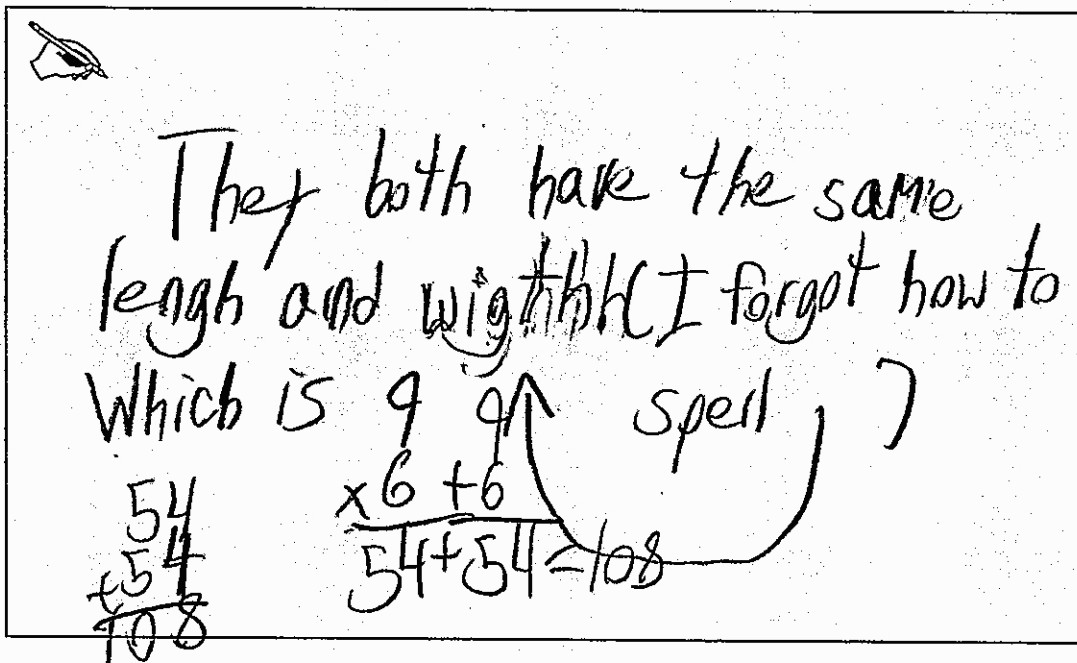 They both have the same
lengh and wigthh (I forgot how to
spell)
Which is 9 9
x6 +6
54+54=108
54
+54
108